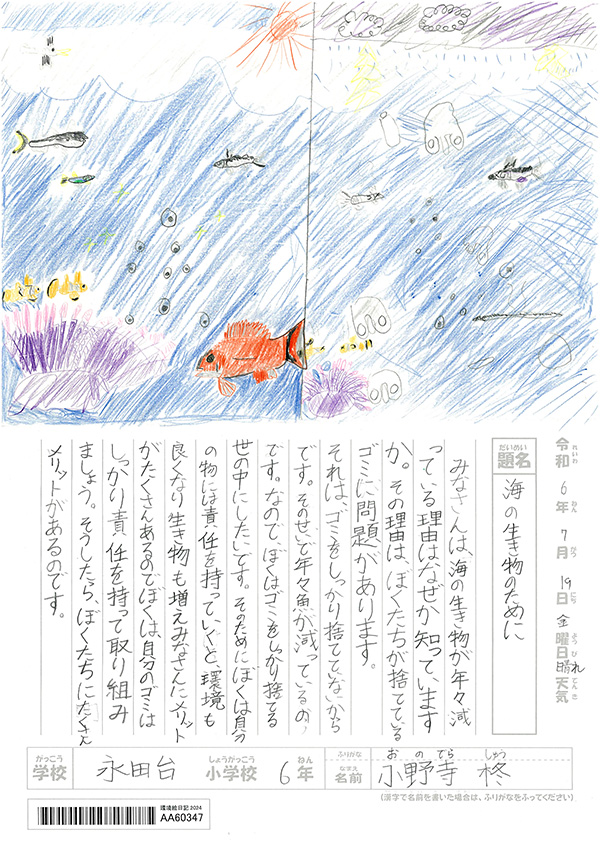 令和 6年 7月 19日 金曜日 晴れ 天気
れいわ ねん がつ にち ようび てんき
題名 海の生き物のために
だいめい
みなさんは、海の生き物が年々減
っている理由はなぜか知っています
か。その理由は、ぼくたちが捨てている
ゴミに問題があります。
それは、ゴミをしっかり捨てていないから
です。そのせいで年々魚が減っているの
です。なので、ぼくはゴミをしっかり捨てる
世の中にしたいです。そのためにぼくは自分
の物には責任を持っていくと、環境も
良くなり生き物も増えみなさんにメリット
がたくさんあるのでぼくは、自分のゴミは
しっかり責任を持って取り組み
ましょう。そうしたら、ぼくたちにたくさん
メリットがあるのです。
がっこう しょうがっこう ねん ふりがな おのでら しゅう
学校 永田台 小学校 6年 なまえ 名前 小野寺 柊
(漢字で名前を書いた場合は、ふりがなをふってください)
環境絵日記2024
AA60347